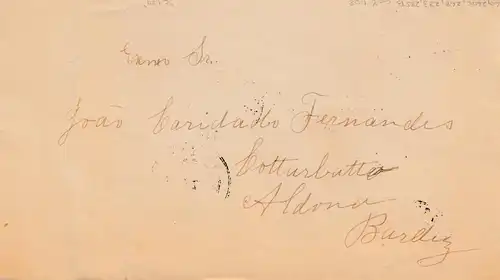 Exmo Sr.
João Caridado Fernandes
Cotturbatto
Aldona
Bardez